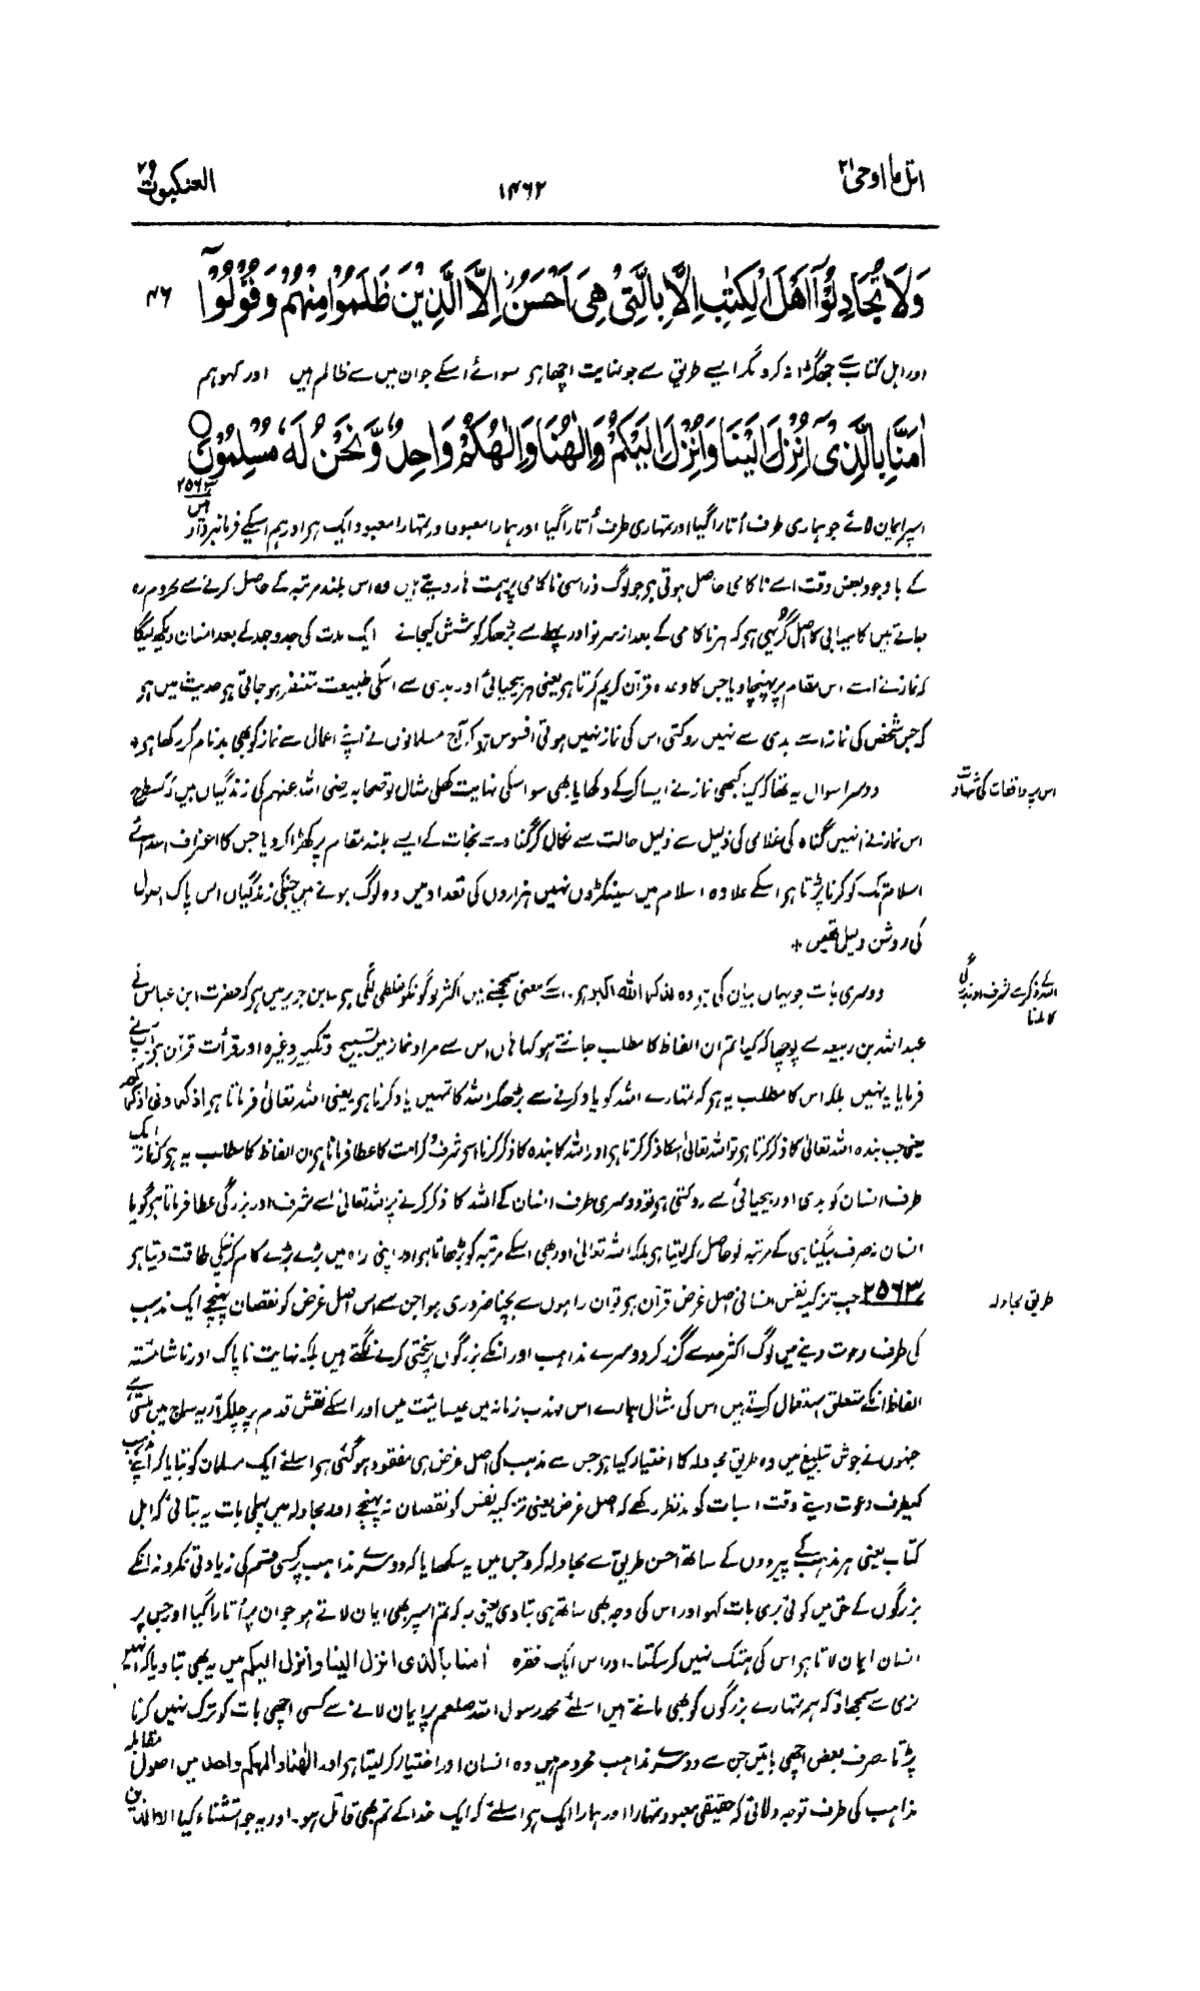 اتل ما اوحی ۲۱
۱۴۶۲
العنکبوت ۲۹
وَلَا تُجَادِلُوْٓا اَهْلَ الْكِتٰبِ اِلَّا بِالَّتِيْ هِيَ اَحْسَنُ اِلَّا الَّذِيْنَ ظَلَمُوْا مِنْهُمْ وَقُوْلُوْٓا
۴۶
اور اہل کتاب سے جھگڑا نہ کرو مگر ایسے طریق سے جو نہایت اچھا ہو سوائے اسکے جو ان میں سے ظالم ہیں اور کہو ہم
اٰمَنَّا بِالَّذِيْٓ اُنْزِلَ اِلَيْنَا وَاُنْزِلَ اِلَيْكُمْ وَاِلٰهُنَا وَاِلٰهُكُمْ وَاحِدٌ وَّنَحْنُ لَهٗ مُسْلِمُوْنَ
۲۵۶۳
اسپر ایمان لائے جو ہماری طرف اُتارا گیا اور تمہاری طرف اُتارا گیا اور ہمارا معبود اور تمہارا معبود ایک ہی ہے اور ہم اسی کے فرمانبردار ہیں
کے باوجود بعض وقت اسے ناکامی حاصل ہوتی ہے جو لوگ ذرا سی ناکامی پر ہمت ہار دیتے ہیں وہ اس بلند مرتبہ کے حاصل کرنے سے محروم رہ
جاتے ہیں کامیابی کا اصل گُر یہی ہے کہ ہر ناکامی کے بعد از سرنو اور پہلے سے بڑھکر کوشش کیجائے ایک مدت کی جدوجہد کے بعد انسان دیکھ لیگا
کہ نماز نے اسے اس مقام پر پہنچا دیا جس کا وعدہ قرآن کریم کرتا ہے یعنی ہر بیحیائی اور بدی سے اسکی طبیعت متنفر ہو جاتی ہے حدیث میں ہے
کہ جس شخص کی نماز اسے بدی سے نہیں روکتی اس کی نماز نہیں ہوتی افسوس تو یہ کہ آج مسلمانوں نے اپنے اعمال سے نماز کو بھی بدنام کر رکھا ہے +
اس پر واقعات کی شہادت
دوسرا سوال یہ تھا کہ کیا کبھی نماز نے ایسا کر کے دکھایا بھی سو اسکی نہایت کھلی مثال تو صحابہ رضی اللہ عنہم کی زندگیاں ہیں کہ کسطرح
اس نماز نے انہیں گناہ کی غلامی کی ذلیل سے ذلیل حالت سے نکال کر گناہ سے نجات کے ایسے بلند مقام پر کھڑا کر دیا جس کا اعتراف اعدائے
اسلام تک کو کرنا پڑتا ہے اسکے علاوہ اسلام میں سینکڑوں نہیں ہزاروں کی تعداد میں وہ لوگ ہوئے ہیں جنکی زندگیاں اس پاک اصول
کی روشن دلیل تھیں +
اللہ کے ذکر سے شرف اور بزرگی کا ملنا
دوسری بات جو یہاں بیان کی ہے وہ لذکر اللہ اکبر ہے۔ اسکے معنی سمجھنے میں اکثر لوگونکو غلطی لگی ہے۔ ابن جریر میں ہے کہ حضرت ابن عباس نے
عبداللہ بن ربیعہ سے پوچھا کہ کیا تم ان الفاظ کا مطلب جانتے ہو کہا ہاں اس سے مراد نماز میں تسبیح و تکبیر وغیرہ اور قرأت قرآن ہے آپ نے
فرمایا یہ نہیں بلکہ اس کا مطلب یہ ہے کہ تمہارے اللہ کو یاد کرنے سے بڑھکر اللہ کا تمہیں یاد کرنا ہے یعنی اللہ تعالیٰ فرماتا ہے اذکرونی اذکرکم
یعنی جب بندہ اللہ تعالیٰ کا ذکر کرتا ہے تو اللہ تعالیٰ اسکا ذکر کرتا ہے اور اللہ کا بندہ کا ذکر کرنا اسے شرف و کرامت کا عطا فرمانا ہے ان الفاظ کا مطلب یہ ہے کہ نماز ایک
طرف انسان کو بدی اور بیحیائی سے روکتی ہے تو دوسری طرف انسان کے اللہ کا ذکر کرنے پر اللہ تعالیٰ اسے شرف اور بزرگی عطا فرماتا ہے گویا
انسان نہ صرف بیگناہی کے مرتبہ کو حاصل کر لیتا ہے بلکہ اللہ تعالیٰ اور بھی اسکے مرتبہ کو بڑھاتا ہے اور اپنی راہ میں بڑے بڑے کام کرنیکی طاقت دیتا ہے
طریق مجادلہ
۲۵۶۳ جب تزکیہ نفس انسانی اصل غرض قرآن ہے تو ان راہوں سے بچنا ضروری ہوا جن سے اس اصل غرض کو نقصان پہنچے ایک مذہب
کی طرف دعوت دینے میں لوگ اکثر حد سے گزر کر دوسرے مذاہب اور انکے بزرگوں پر سختی کرنے لگتے ہیں بلکہ نہایت ناپاک اور ناشائستہ
الفاظ انکے متعلق استعمال کرتے ہیں اس کی مثال ہمارے اس مہذب زمانہ میں عیسائیت میں اور اسکے نقش قدم پر چلکر آریہ سماج میں ملتی ہے
جنہوں نے جوش تبلیغ میں وہ طریق مجادلہ کا اختیار کیا ہے جس سے مذہب کی اصل غرض ہی مفقود ہو گئی ہے اسلئے ایک مسلمان کو بتایا کہ اپنے مذہب
کیطرف دعوت دیتے وقت اسبات کو مدنظر رکھے کہ اصل غرض یعنی تزکیہ نفس کو نقصان نہ پہنچے اور مجادلہ میں پہلی بات یہ بتائی کہ اہل
کتاب یعنی ہر مذہب کے پیرووں کے ساتھ احسن طریق سے مجادلہ کرو جس میں یہ سکھایا کہ دوسرے مذاہب پر کسی قسم کی زیادتی نکرو نہ انکے
بزرگوں کے حق میں کوئی بری بات کہو اور اس کی وجہ بھی ساتھ ہی بتا دی یعنی یہ کہ تم اسپر بھی ایمان لاتے ہو جو ان پر اُتارا گیا اور جس پر
انسان ایمان لاتا ہے اس کی ہتک نہیں کر سکتا۔ اور اس ایک فقرہ اٰمنا بالذی انزل الینا وانزل الیکم میں یہ بھی بتا دیا کہ انہیں
نرمی سے سمجھاؤ کہ ہم تمہارے بزرگوں کو بھی مانتے ہیں اسلئے محمد رسول اللہ صلعم پر ایمان لانے سے کسی اچھی بات کو ترک نہیں کرنا
پڑتا صرف بعض اچھی باتیں جن سے دوسرے مذاہب محروم ہیں وہ انسان اور اختیار کر لیتا ہے اور الٰھنا والٰھکم واحد میں اصول مقابلہ
مذاہب کی طرف توجہ دلائی کہ حقیقی معبود تمہارا اور ہمارا ایک ہے اسلئے کہ ایک خدا کے تم بھی قائل ہو۔ اور یہ جو استثناء کیا الا الذین